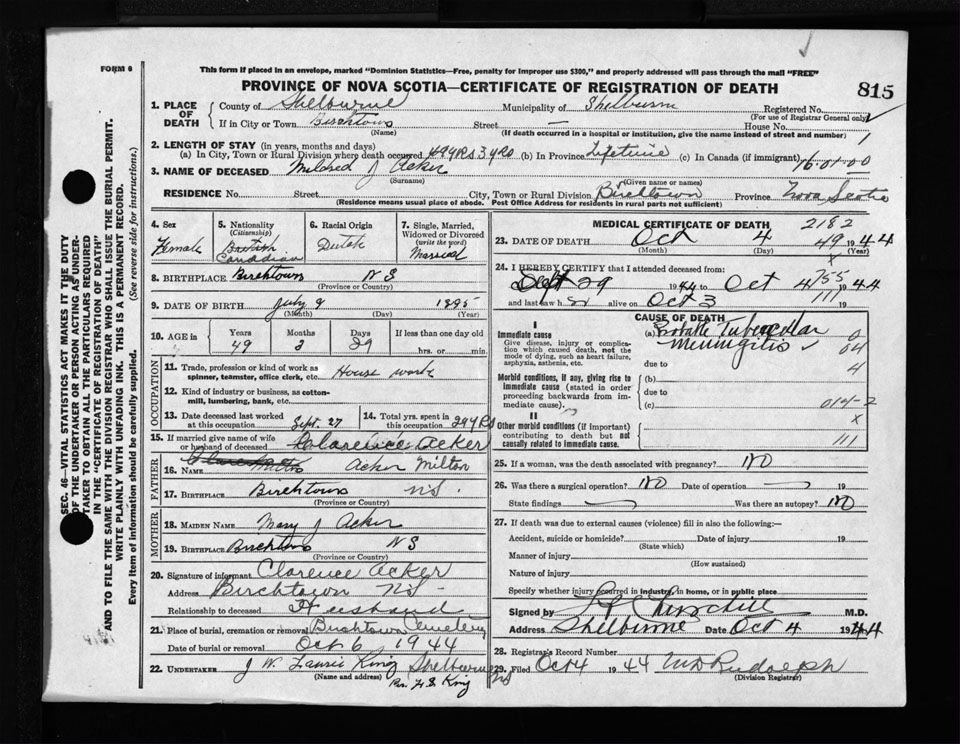 FORM 6
This form if placed in an envelope, marked "Dominion Statistics—Free, penalty for improper use $300," and properly addressed will pass through the mail "FREE"
PROVINCE OF NOVA SCOTIA—CERTIFICATE OF REGISTRATION OF DEATH
815
SEC. 46—VITAL STATISTICS ACT MAKES IT THE DUTY
OF THE UNDERTAKER OR PERSON ACTING AS UNDER-
TAKER TO OBTAIN ALL THE PARTICULARS REQUIRED
IN THE "CERTIFICATE OF REGISTRATION OF DEATH"
AND TO FILE THE SAME WITH THE DIVISION REGISTRAR WHO SHALL ISSUE THE BURIAL PERMIT.
WRITE PLAINLY WITH UNFADING INK. THIS IS A PERMANENT RECORD.
Every item of information should be carefully supplied. (See reverse side for instructions.)
1. PLACE OF DEATH County of Shelburne Municipality of Shelburne Registered No.
(For use of Registrar General only)
If in City or Town Birchtown Street — House No.
(Name) (If death occurred in a hospital or institution, give the name instead of street and number)
2. LENGTH OF STAY (in years, months and days)
(a) In City, Town or Rural Division where death occurred 49 yrs 3 yrs (b) In Province Lifetime (c) In Canada (if immigrant)
16-01-00
3. NAME OF DECEASED Mildred J Acker
(Surname) (Given name or names)
RESIDENCE No. Street City, Town or Rural Division Birchtown Province Nova Scotia
(Residence means usual place of abode. Post Office Address for residents in rural parts not sufficient)
4. Sex Female
5. Nationality (Citizenship) British Canadian
6. Racial Origin Dutch
7. Single, Married, Widowed or Divorced (write the word) Married
8. BIRTHPLACE Birchtown N S
(Province or Country)
9. DATE OF BIRTH July 9 1895
(Month) (Day) (Year)
10. AGE in Years Months Days If less than one day old
49 2 29 hrs. or min.
OCCUPATION
11. Trade, profession or kind of work as spinner, teamster, office clerk, etc. House work
12. Kind of industry or business, as cotton-mill, lumbering, bank, etc.
13. Date deceased last worked at this occupation Sept. 27
14. Total yrs. spent in this occupation 29 yrs
15. If married give name of wife or husband of deceased Clarence Acker
FATHER
16. NAME Acker Milton
17. BIRTHPLACE Birchtown N.S.
(Province or Country)
MOTHER
18. MAIDEN NAME Mary J Acker
19. BIRTHPLACE Birchtown N S
(Province or Country)
20. Signature of informant Clarence Acker
Address Birchtown N.S.
Relationship to deceased Husband
21. Place of burial, cremation or removal Birchtown Cemetery
Date of burial or removal Oct 6, 1944
22. UNDERTAKER J W. Laurie King Shelburne NS
(Name and address) Per. H S. King
MEDICAL CERTIFICATE OF DEATH
2182
23. DATE OF DEATH Oct 4 1944
49
(Month) (Day) (Year)
24. I HEREBY CERTIFY that I attended deceased from:
Sept 29 1944 to Oct 4 1944
755
and last saw h er alive on Oct 3 19
111
CAUSE OF DEATH
I
Immediate cause
Give disease, injury or complication which caused death, not the mode of dying, such as heart failure, asphyxia, asthenia, etc.
(a) Probable Tubercular Meningitis
due to
Morbid conditions, if any, giving rise to immediate cause (stated in order proceeding backwards from immediate cause).
(b)
due to
(c)
014-2
II
Other morbid conditions (if important) contributing to death but not causally related to immediate cause.
x
111
25. If a woman, was the death associated with pregnancy? No
26. Was there a surgical operation? No Date of operation 19
State findings Was there an autopsy? No
27. If death was due to external causes (violence) fill in also the following:—
Accident, suicide or homicide? Date of injury 19
(State which)
Manner of injury
(How sustained)
Nature of injury
Specify whether injury occurred in industry, in home, or in public place
Signed by Churchill M.D.
Address Shelburne Date Oct 4 1944
28. Registrar's Record Number
29. Filed Oct 4 1944 Rudolph
(Division Registrar)